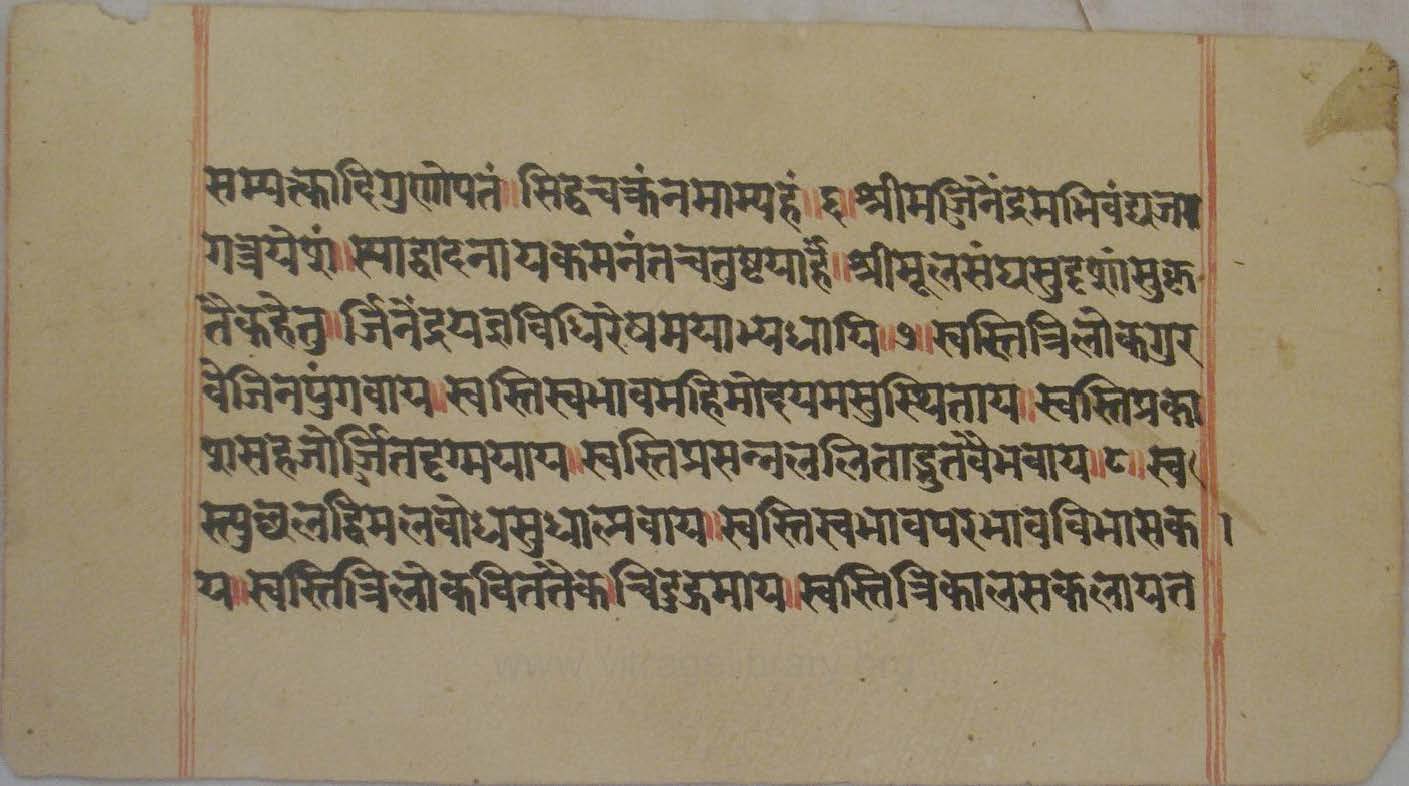 सम्यत्कादिगुणोपेतं॥सिद्धचक्रंनमाम्यहं॥६॥श्रीमज्जिनेंद्रमभिवंद्यज
गत्रयेशं॥स्याद्वादनायकमनंतचतुष्टयार्हं॥श्रीमूलसंघसुदृशांसुकृ
तैकहेतु॥र्जिनेंद्रयज्ञविधिरेषमयाभ्यधायि॥७॥स्वस्तित्रिलोकगुर
वेजिनपुंगवाय॥स्वस्तिस्वभावमहिमोदयमसुस्थिताय॥स्वस्तिप्रका
शसहजोर्जितदृग्मयाय॥स्वस्तिप्रसन्नललिताद्भुतवैभवाय॥८॥स्व
स्त्युछलद्विमलबोधसुधाप्लवाय॥स्वस्तिस्वभावपरभावविभासका
य॥स्वस्तित्रिलोकविततैकचिदुद्गमाय॥स्वस्तित्रिकालसकलायत
www.vitragelibrary.org